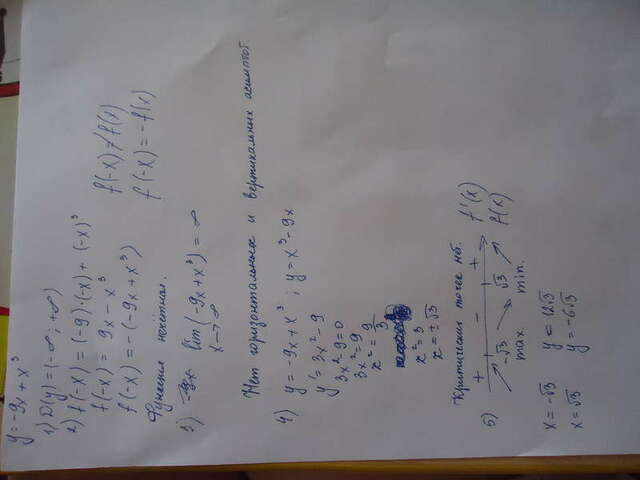 y = -9x + x³
1) D(y) = (-∞; +∞)
2) f(-x) = (-9)·(-x) + (-x)³
f(-x) = 9x - x³
f(-x) = -(-9x + x³)
f(-x) ≠ f(x)
f(-x) = -f(x)
Функция нечётная.
3) lim (-9x + x³) = ∞
x→∞
Нет горизонтальных и вертикальных асимптот
4) y = -9x + x³ ; y = x³ - 9x
y' = 3x² - 9
3x² - 9 = 0
3x² = 9
x² = 9/3
x² = 3
x = ±√3
Критических точек нет.
5) + -√3 - √3 + f'(x)
max. min. f(x)
x = -√3 y = 12√3
x = √3 y = -6√3